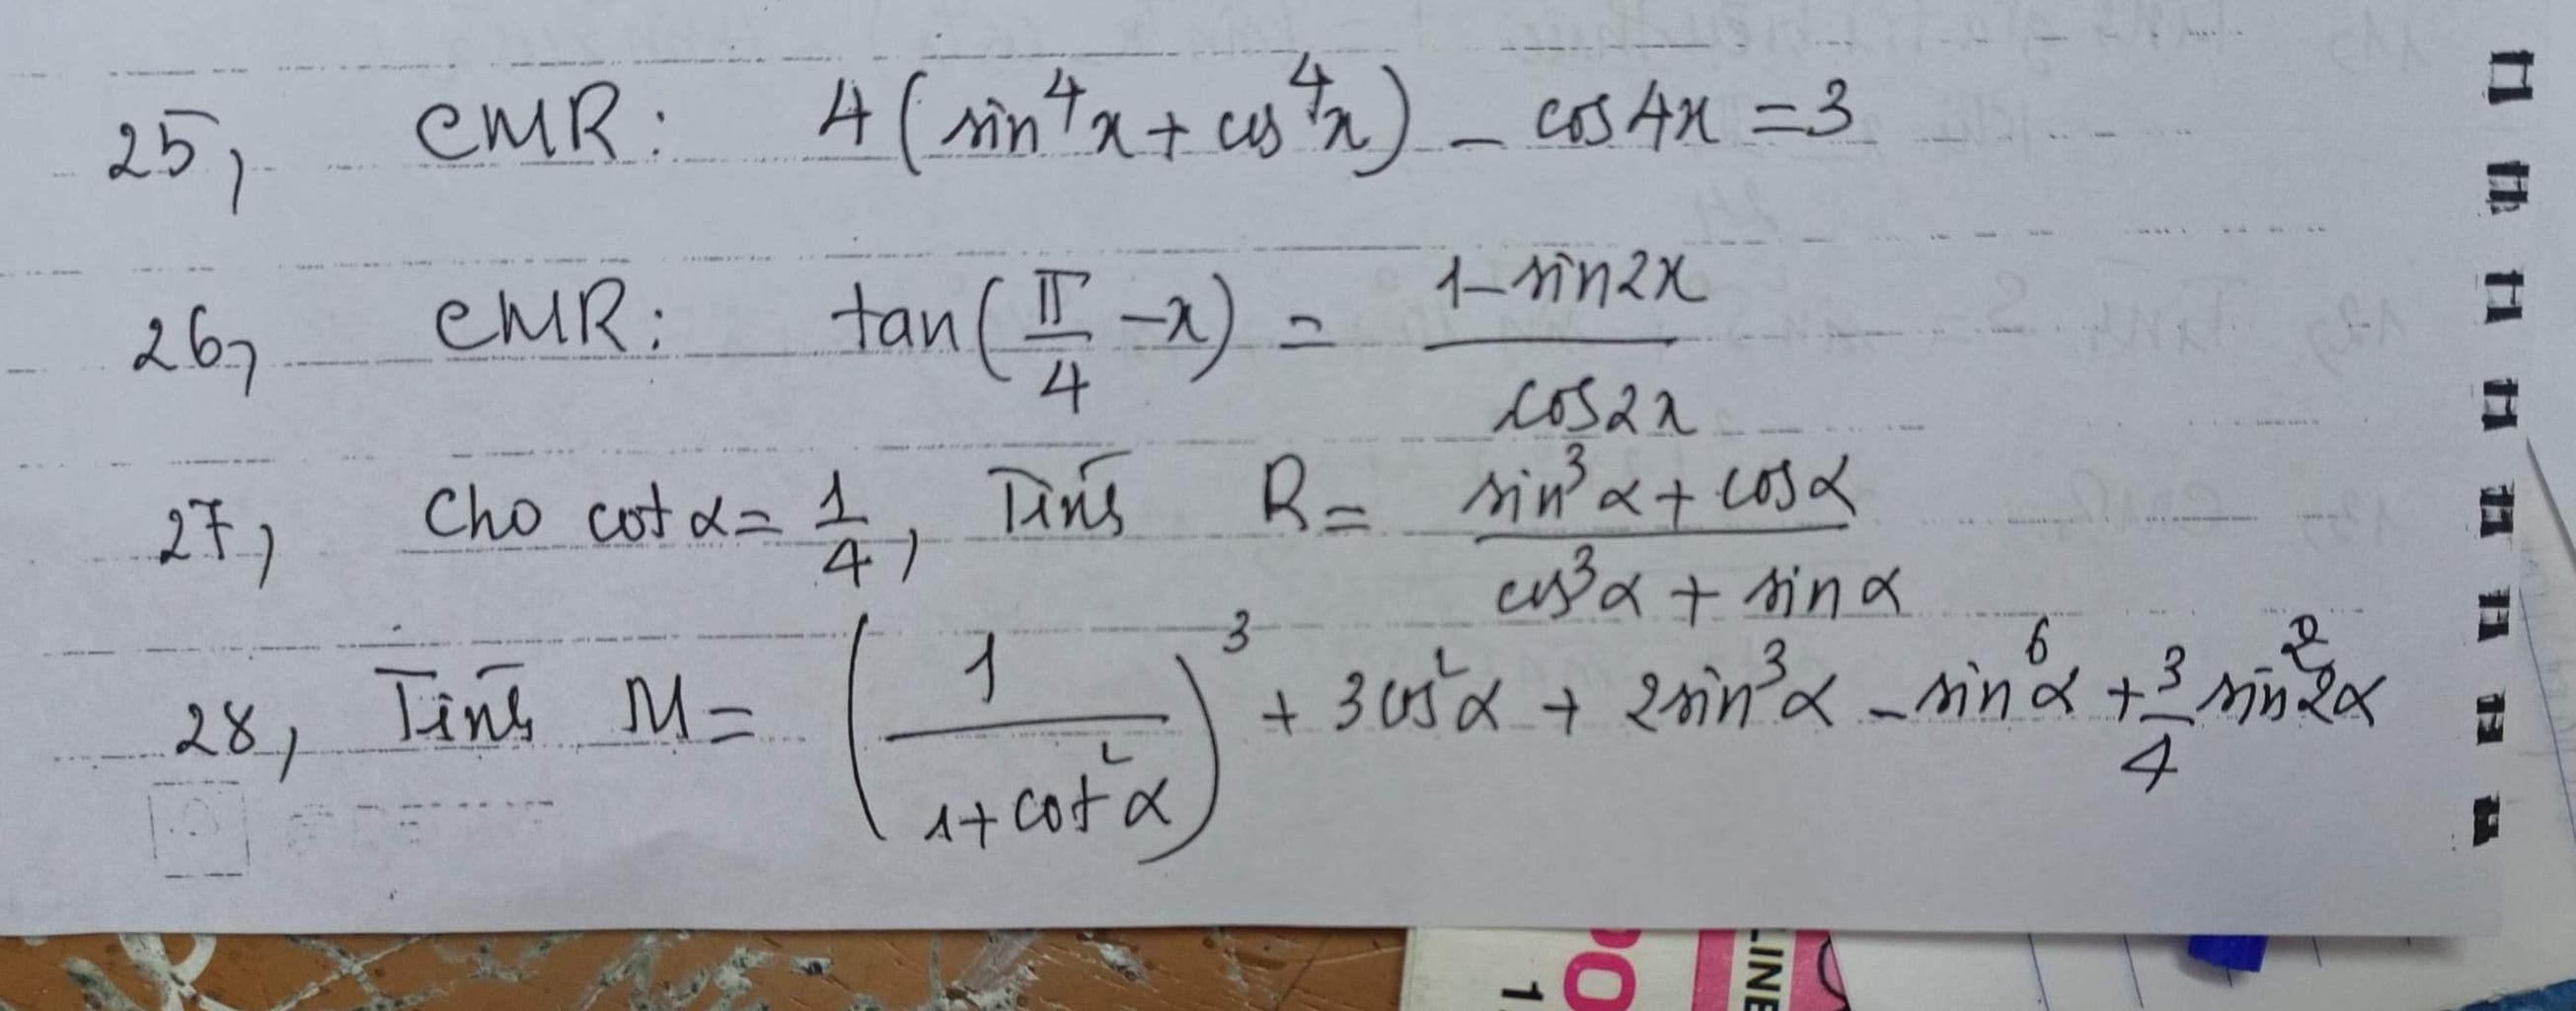 25, CMR: 4(sin⁴x + cos⁴x) - cos4x = 3
26, CMR: tan(π/4 - x) = (1 - sin2x)/(cos2x)
27, Cho cot α = 1/4, Tính R = (sin³α + cosα)/(cos³α + sin α)
28, Tính M = (1/(1 + cot²α))³ + 3cos²α + 2sin³α - sin⁶α + 3/4 sin²2α
LINE
1